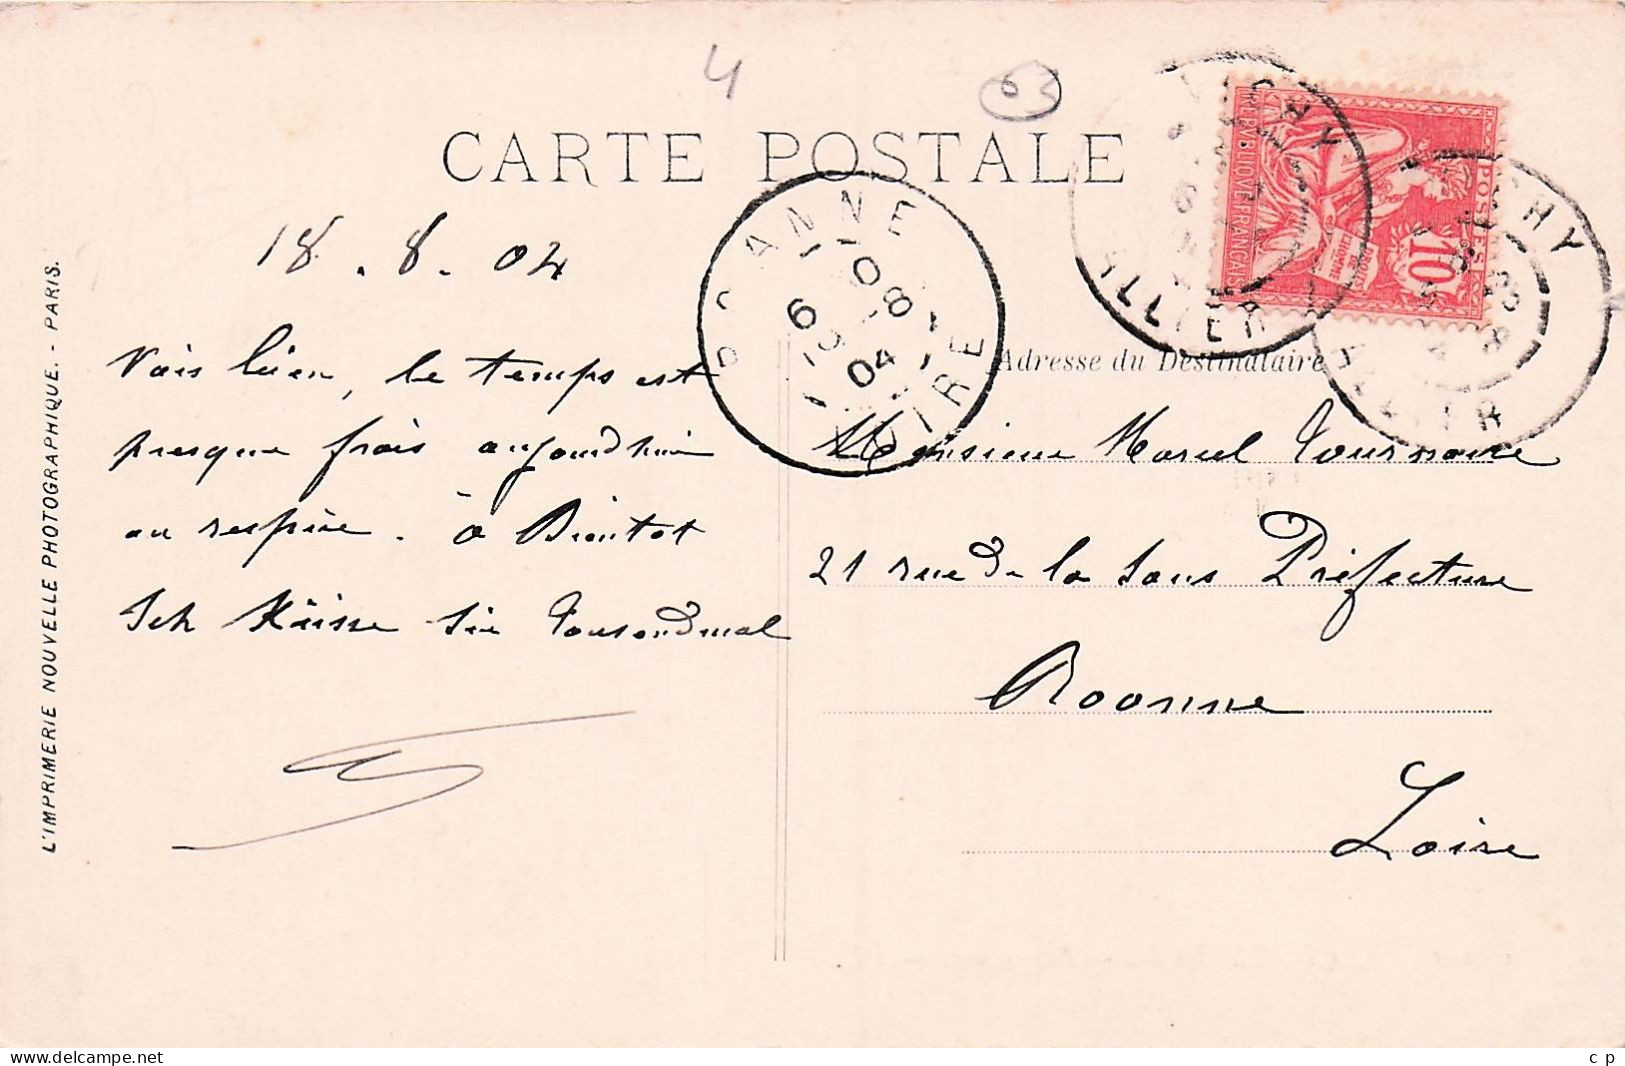 4
63
CARTE POSTALE
18.8.04
Vais bien, le temps est
presque frais aujourdhui
on respire. à Bientot
Ich Küsse Sie Tousendmal
ROANNE
LOIRE
6
08
04
VICHY
ALLIER
VICHY
ALLIER
REPUBLIQUE FRANÇAISE
POSTES
10
DROITS DE L'HOMME
Adresse du Destinataire
Monsieur Marcel Tournaire
21 rue de la Sous Préfecture
Roanne
Loire
L'IMPRIMERIE NOUVELLE PHOTOGRAPHIQUE. - PARIS.
delcampe.net
c p